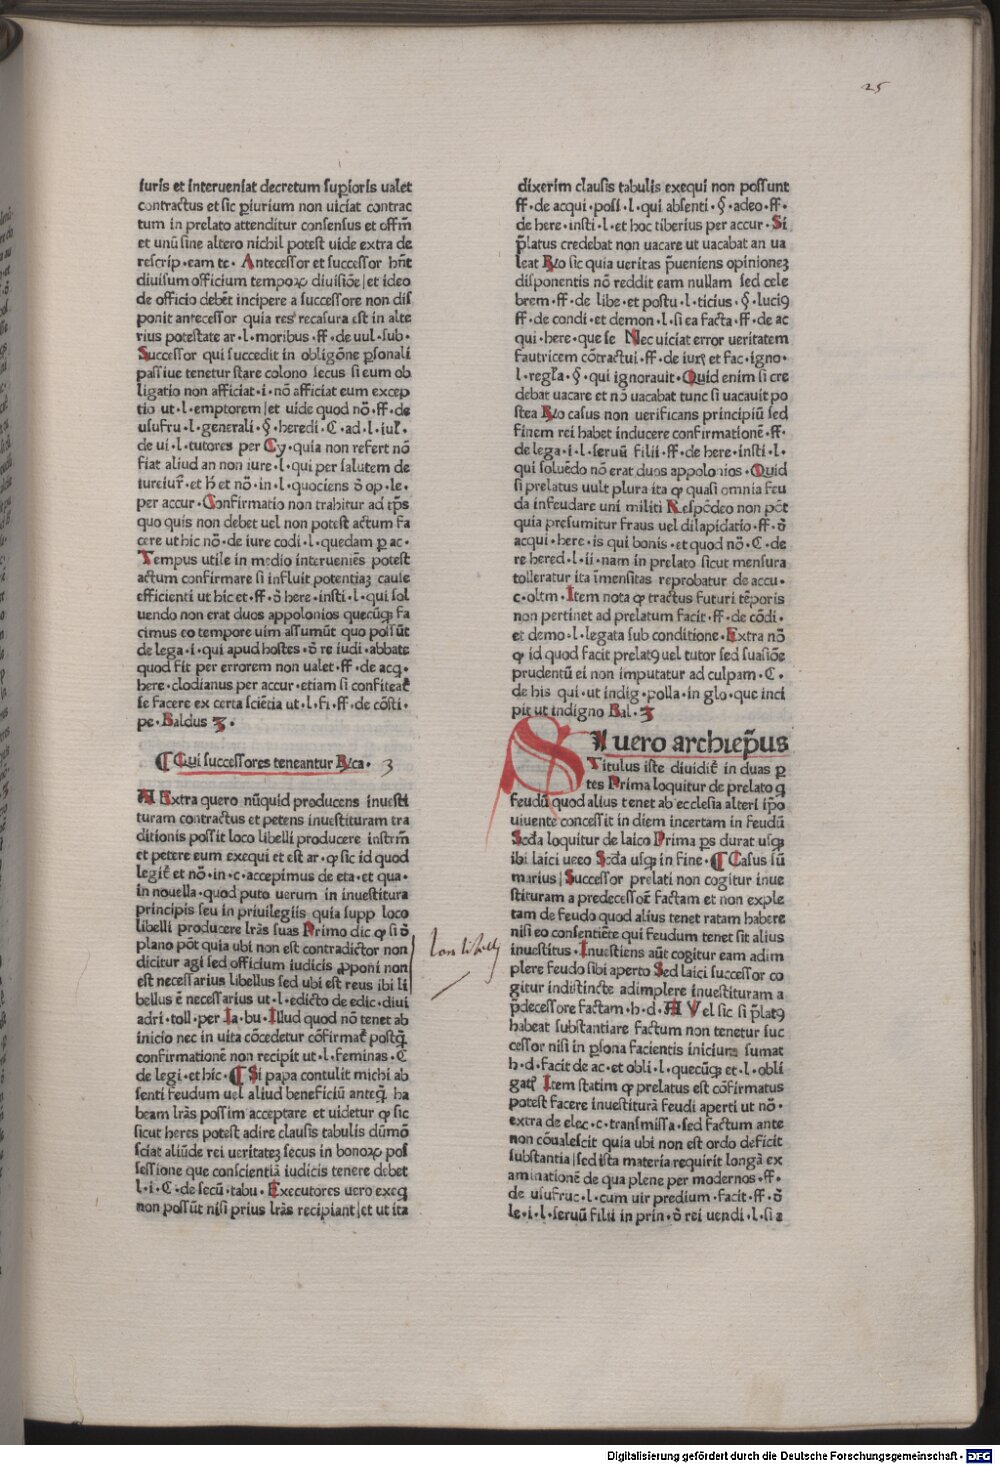 25
iuris et interueniat decretum sup̱ioris ualet
contractus et sic p̱iurium non uiciat contrac
tum in prelato attenditur consensus et offm̄
et unū sine altero nichil potest uide extra de
rescrip·eam te· Antecessor et successor hn̄t
diuisum officium tempoꝝ diuisiōe|et ideo
de officio debēt incipere a successore non dis
ponit antecessor quia res recasura est in alte
rius potestate ar·l·moribus·ff·de uul·sub·
Successor qui succedit in obligōne p̱sonali
passiue tenetur stare colono secus si eum ob
ligatio non afficiat·i·nō afficiat eum excep
tio ut·l·emptorem|et uide quod nō·ff·de
usufru·l·generali·§·heredi·C·ad·l·iul̄·
de ui·l·tutores per Cy·quia non refert nō
fiat aliud an non iure·l·qui per salutem de
iureiur̄·et h̄ et nō·in·l·quociens ō op·le·
per accur·Confirmatio non trahitur ad tp̄s
quo quis non debet uel non potest actum fa
cere ut hic nō·de iure codi·l·quedam p̱ ac·
Tempus utile in medio interueniēs potest
actum confirmare si influit potentiaꝫ cause
efficienti ut hic et·ff·ō here·insti·l·qui sol
uendo non erat duos appolonios quecūqꝫ fa
cimus eo tempore uim assumūt quo possūt
de lega·i·qui apud hostes·ō re iudi·abbate
quod fit per errorem non ualet·ff·de acq̄·
here·clodianus per accur·etiam si confiteat᷑
se facere ex certa sciētia ut·l·fi·ff·de cōsti·
pe·Baldus 3·
¶ Qui successores teneantur Rica· 3
A Extra quero nūquid producens inuesti
turam contractus et petens inuestituram tra
ditionis possit loco libelli producere instrm̄
et petere eum exequi et est ar·ꝙ sic id quod
legit᷑ et nō·in·c·accepimus de eta·et qua·
in nouella·quod puto uerum in inuestitura
principis seu in priuilegiis quia supp loco
libelli producere lr̄as suas Primo dic ꝙ si ō
plano pōt quia ubi non est contradictor non
dicitur agi sed officium iudicis ꝓponi non
est necessarius libellus sed ubi est reus ibi li
bellus ē necessarius ut·l·edicto de edic·diui
adri·toll·per Ia·bu·Illud quod nō tenet ab
inicio nec in uita cōcedetur cōfirmat᷑ postq̄
confirmationē non recipit ut·l·feminas·C
de legi·et hic·¶ Si papa contulit michi ab
senti feudum uel aliud beneficiū anteq̄ ha
beam lr̄as possim acceptare et uidetur ꝙ sic
sicut heres potest adire clausis tabulis dūmō
sciat aliūde rei ueritateꝫ secus in bonoꝝ pos
sessione que conscientiā iudicis tenere debet
l·i·C·de secū·tabu·Executores uero exeq̄
non possūt nisi prius lr̄as recipiant|et ut ita
dixerim clausis tabulis exequi non possunt
ff·de acqui·posi·l·qui absenti·§·adeo·ff·
de here·insti·l·et hoc tiberius per accur·Si
p̄latus credebat non uacare ut uacabat an ua
leat Rō sic quia ueritas p̄ueniens opinioneꝫ
disponentis nō reddit eam nullam sed cele
brem·ff·de libe·et postu·l·ticius·§·luciꝰ
ff·de condi·et demon·l·si ea facta·ff·de ac
qui·here·que se Nec uiciat error ueritatem
fautricem cōtractui·ff·de iurꝭ et fac·igno·
l·regl̄a·§·qui ignorauit·Quid enim si cre
debat uacare et nō uacabat tunc si uacauit po
stea Rō casus non uerificans principiū sed
finem rei habet inducere confirmationē·ff·
de lega·i·l·seruū filii·ff·de here·insti·l·
qui soluēdo nō erat duos appolonios·Quid
si prelatus uult plura ita ꝙ quasi omnia feu
da infeudare uni militi Respōdeo non pōt
quia presumitur fraus uel dilapidatio·ff·ō
acqui·here·is qui bonis·et quod nō·C·de
re hered·l·ii·nam in prelato sicut mensura
tolleratur ita īmensitas reprobatur de accu·
c·oltm̄·Item nota ꝙ tractus futuri tēporis
non pertinet ad prelatum facit·ff·de cōdi·
et demo·l·legata sub conditione·Extra nō
ꝙ id quod facit prelatꝰ uel tutor sed suasiōe
prudentū ei non imputatur ad culpam·C·
de his qui·ut indig·polla·in glo·que inci
pit ut indigno Bal·3
SI uero archiep̄us
Titulus iste diuidit᷑ in duas p̱
tes Prima loquitur de prelato q̄
feudū quod alius tenet ab ecclesia alteri ip̄o
uiuente concessit in diem incertam in feudū
Scd̄a loquitur de laico Prima p̱s durat usqꝫ
ibi laici uero Scd̄a usqꝫ in fine·¶ Casus sū
marius|Successor prelati non cogitur inue
stituram a predecessor̄e factam et non exple
tam de feudo quod alius tenet ratam habere
nisi eo consentiēte qui feudum tenet sit alius
inuestitus·Inuestiens aūt cogitur eam adim
plere feudo sibi aperto Sed laici successor co
gitur indistincte adimplere inuestituram a
p̄decessore factam·h·d·A Vel sic si p̄latꝰ
habeat substantiare factum non tenetur suc
cessor nisi in p̱sona facientis inicium sumat
h·d·facit de ac·et obli·l·quecūqꝫ et·l·obli
gat᷑ Item statim ꝙ prelatus est cōfirmatus
potest facere inuestiturā feudi aperti ut nō·
extra de elec·c·transmissa·sed factum ante
non cōualescit quia ubi non est ordo deficit
substantia|sed ista materia requirit longā ex
aminationē de qua plene per modernos·ff·
de usufruc·l·cum uir predium·facit·ff·ō
le·i·l·seruū filii in prin·ō rei uendi·l·si a
Digitalisierung gefördert durch die Deutsche Forschungsgemeinschaft · DFG